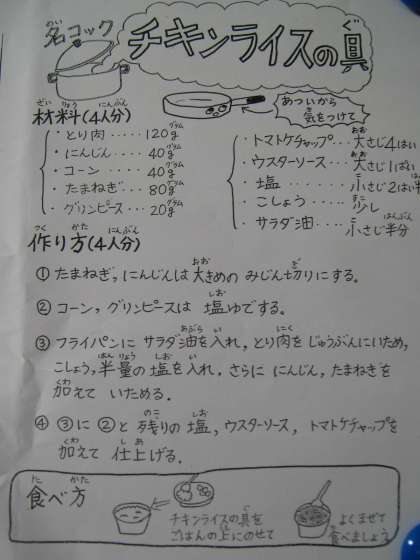 名コック
チキンライスの具
材料(4人分)
あついから
気をつけて
・とり肉・・・・・120g
・にんじん・・・・40g
・コーン・・・・・40g
・たまねぎ・・・・80g
・グリンピース・・・20g
・トマトケチャップ・・・大さじ4はい
・ウスターソース・・・大さじ1ぱい
・塩・・・・・小さじ2はい半
・こしょう・・・・・少し
・サラダ油・・・・小さじ半分
作り方(4人分)
①たまねぎ,にんじんは大きめのみじん切りにする。
②コーン,グリンピースは塩ゆでする。
③フライパンにサラダ油を入れ,とり肉をじゅうぶんにいため,
こしょう,半量の塩を入れ,さらににんじん,たまねぎを
加えていためる.
④③に②と残りの塩,ウスターソース,トマトケチャップを
加えて仕上げる.
食べ方
チキンライスの具を
ごはんの上にのせて
よくまぜて
食べましょう